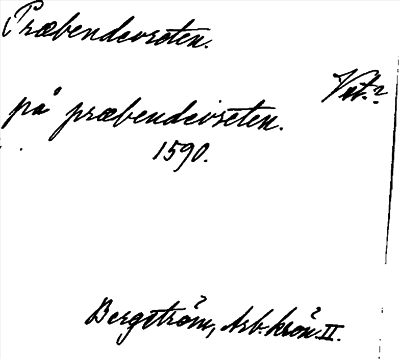 Præbendevreten.
Vät.?
på præbendevreten.
1590.
Bergström, Arb. krön. II.